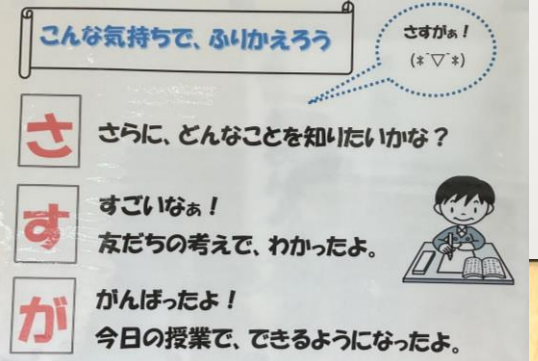 こんな気持ちで、ふりかえろう
さすがぁ！
(*¯▽¯*)
さ
さらに、どんなことを知りたいかな？
す
すごいなぁ！
友だちの考えで、わかったよ。
が
がんばったよ！
今日の授業で、できるようになったよ。